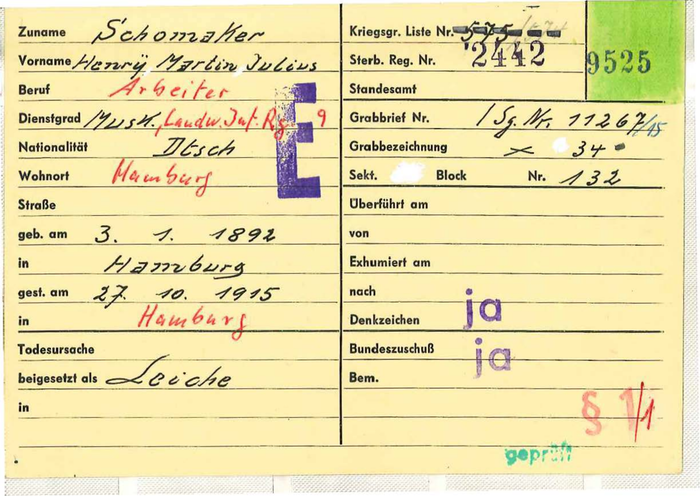 Zuname Schomaker
Vorname Henrÿ Martin Julius
Beruf Arbeiter
Dienstgrad Musk., Landw. Inf. Rg. 9
Nationalität Dtsch
Wohnort Hamburg
E
Straße
geb. am 3. 1. 1892
in Hamburg
gest. am 27. 10. 1915
in Hamburg
Todesursache
beigesetzt als Leiche
in
Kriegsgr. Liste Nr. 575
Sterb. Reg. Nr. 2442
9525
Standesamt
Grabbrief Nr. 1 Sg. Nr. 11267/15
Grabbezeichnung x 34
Sekt. Block Nr. 132
Überführt am
von
Exhumiert am
nach
Denkzeichen ja
Bundeszuschuß ja
Bem.
§ 1/1
geprüft